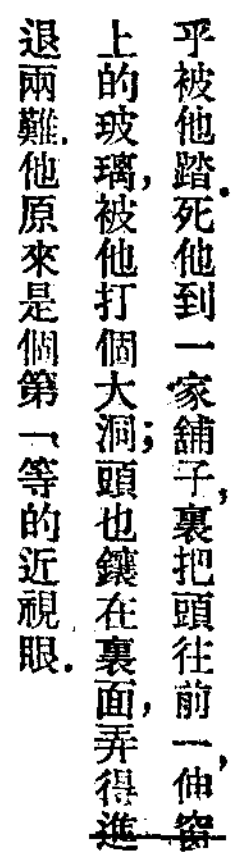 乎被他踏死．他到一家舖子，裏把頭往前一伸，窗
上的玻璃，被他打個大洞；頭也鑲在裏面，弄得進
退兩難．他原來是個第一等的近視眼．